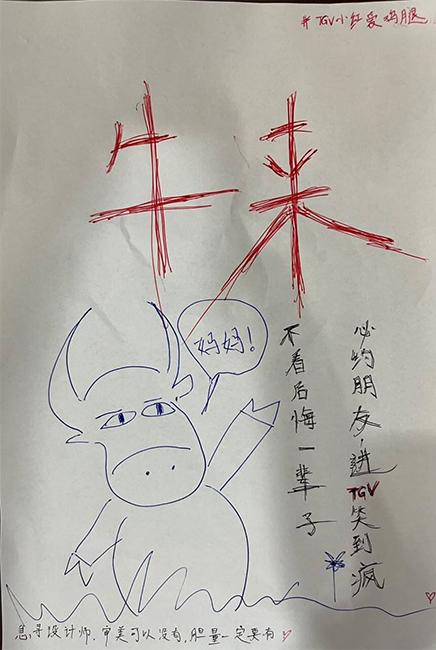 # TGV小红爱鸡腿
牛来
妈妈!
必约朋友,进TGV笑到疯
不看后悔一辈子
急寻设计师,审美可以没有,胆量一定要有